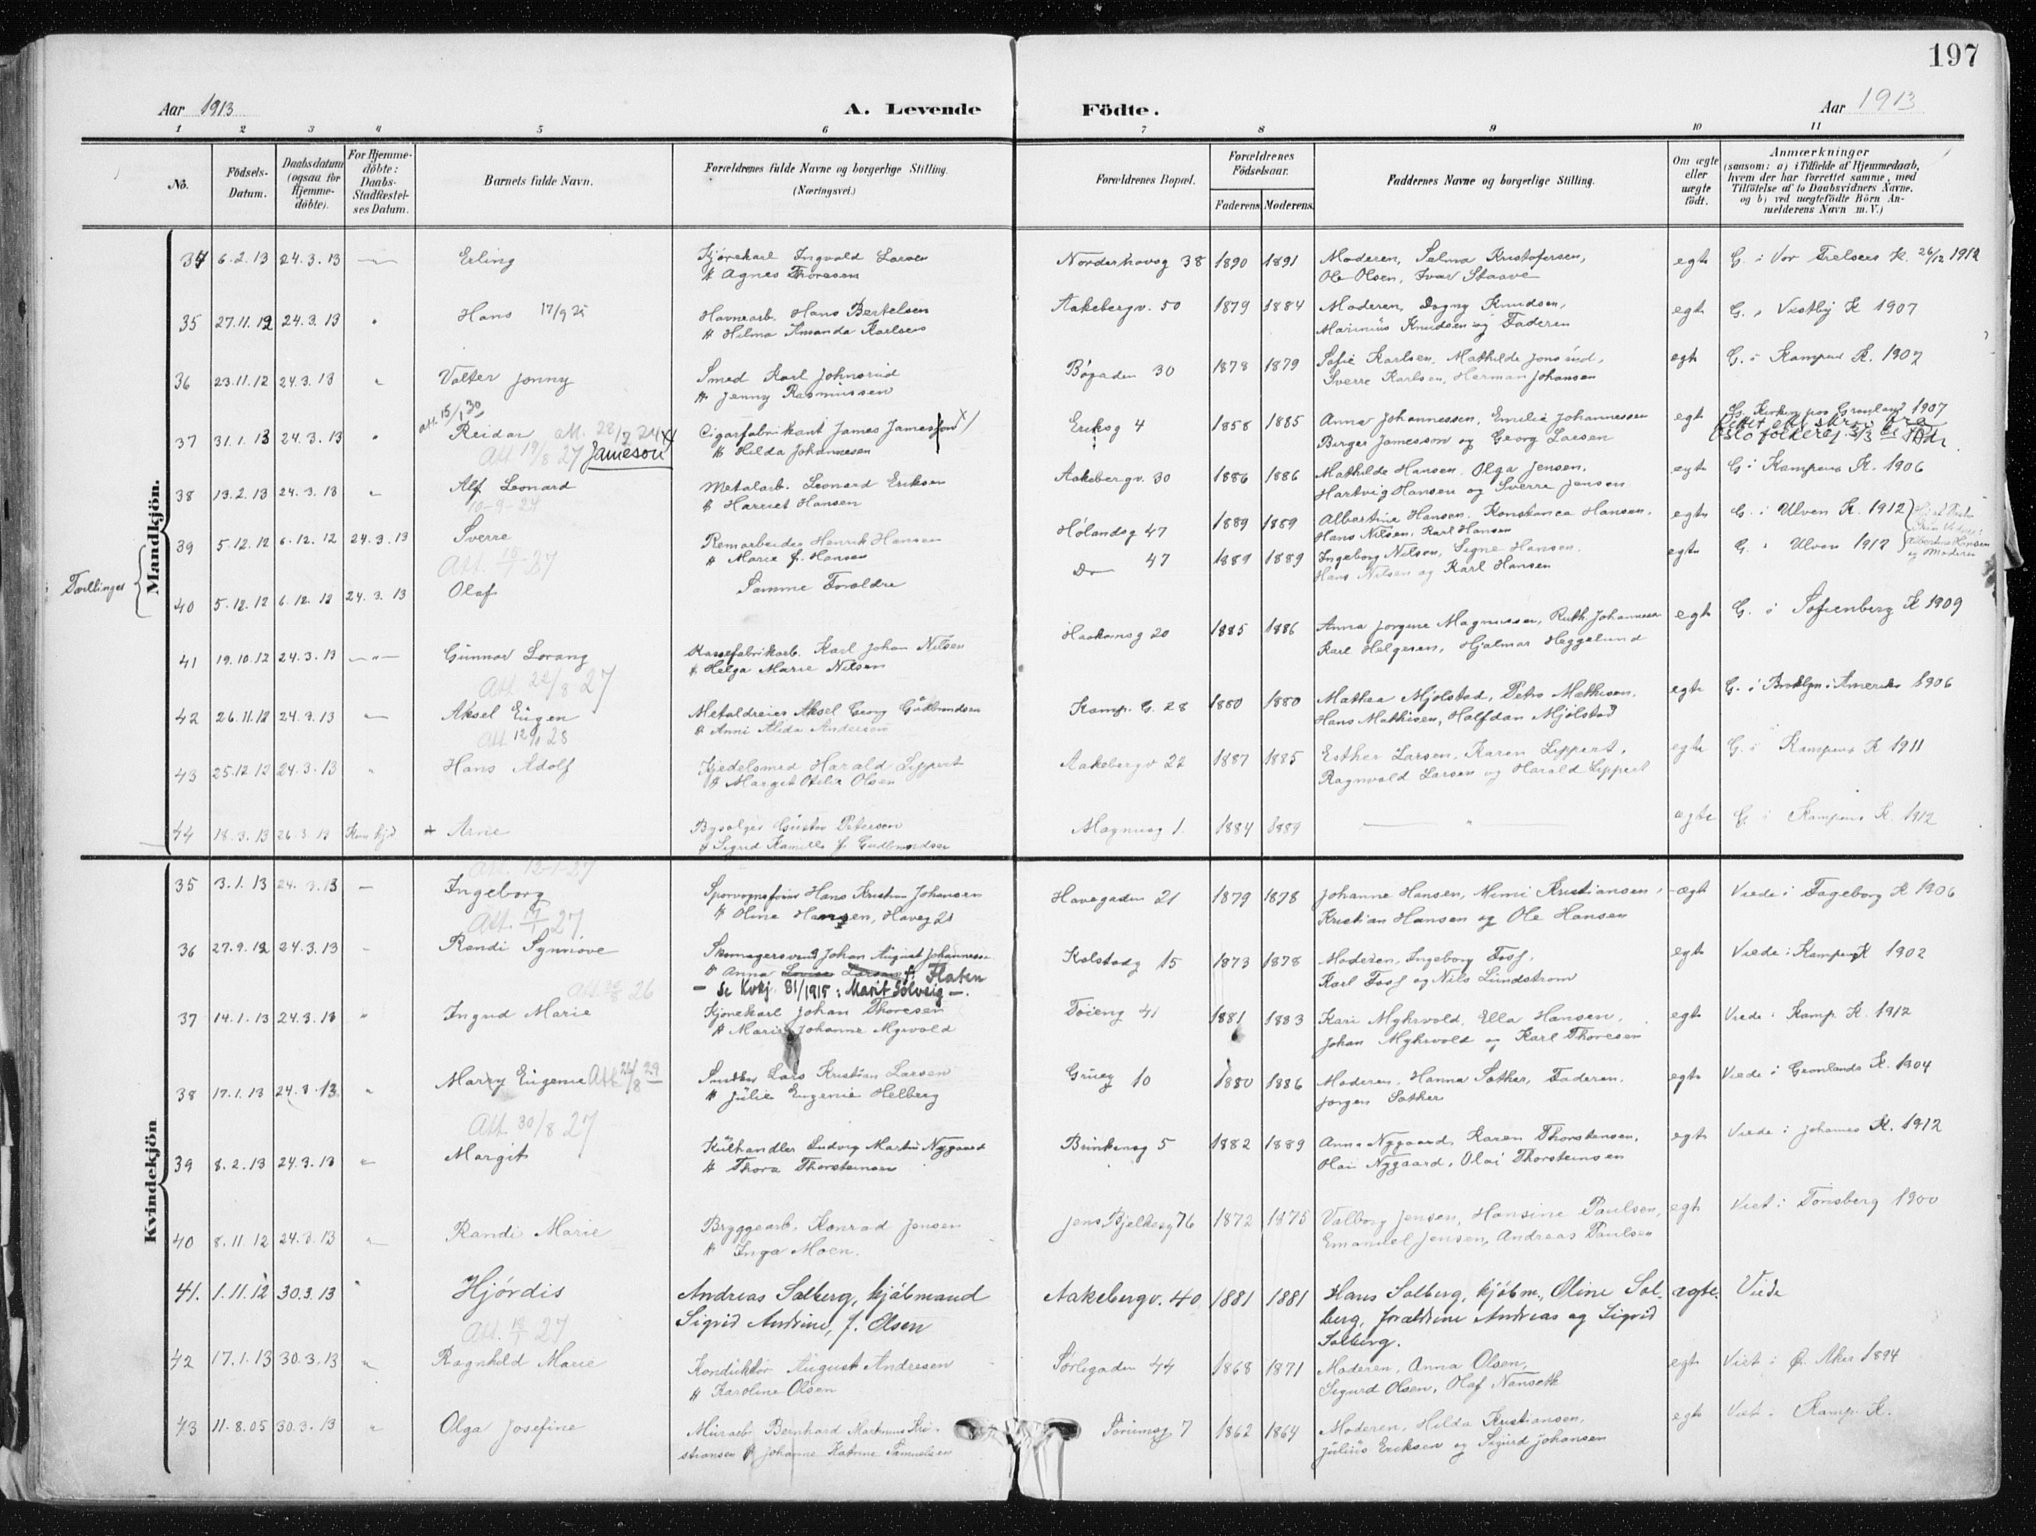 197
Aar 1913 A. Levende Födte. Aar 1913
1 2 3 4 5 6 7 8 9 10 11
No.
Födsels-
Datum.
Daabsdatum
(ogsaa for
Hjemme-
döbte).
For Hjemme-
döbte:
Daabs-
Stadfæstel-
ses Datum.
Barnets fulde Navn.
Forældrenes fulde Navne og borgerlige Stilling.
(Næringsvei.)
Forældrenes Bopæl.
Forældrenes
Födselsaar.
Faderens. Moderens.
Faddernes Navne og borgerlige Stilling.
Om ægte
eller
uægte
födt.
Anmærkninger
(saasom: a) i Tilfælde af Hjemmedaab,
hvem der har forrettet samme, med
Tilföielse af to Daabsvidners Navne.
og b) ved uægtefödte Börn An-
melderens Navn m. V.)
Mandkjön.
34 6.2.13 24.3.13 Erling Kjørekarl Ingvald Larsen Norderhovsg 38 1890 1891 Moderen, Selma Kristofersen, egte G. i Vor Frelsers K. 26/12 1912
Agnes Thoresen Ole Olsen, Ivar Staave
35 27.11.12 24.3.13 Hans 17/9 25 Havnearb. Hans Bertelsen Aakebergv. 50 1879 1884 Moderen, Dagny Knudsen, egte G. i Vestby K 1907
Hilma Amanda Karlsen Marinius Knudsen og Faderen
36 23.11.12 24.3.13 Valter Jonny Smed Karl Johnsrud Bøgaden 30 1878 1879 Sofie Karlsen, Mathilde egt G. i Kampens K. 1907
Jenny Rasmussen Sverre Karlsen, Herman Johansen
att. 15/1 30
37 31.1.13 24.3.13 Reidar Cigarfabrikant James Jameson Eriksg 4 1858 1885 Anna Johannessen, Emilie Johannessen egt Kirken paa Grønland 1907
Att 19/8 27 Jameson Hilda Johannesen Birger Jamesson og Georg Larsen
38 13.2.13 24.3.13 Alf Leonard Metalarb. Leonard Eriksen Aakebergv. 30 1886 1886 Mathilde Hansen, Olga Jensen, egte G. i Kampens K. 1906
10-9-24 Harriet Hansen Hartvig Hansen og Sverre Jensen
Tvillinger
39 5.12.12 6.12.12 24.3.13 Sverre Remarbeider Henrik Hansen Hølandsg 47 1889 1889 Albertine Hansen, Konstance Hansen, egte G. i Ulven K. 1912
Marie f. Hansen Hans Nilsen, Karl Hansen
40 5.12.12 6.12.12 24.3.13 Olaf Samme Foraldre Do 47 1889 1889 Ingeborg Nilsen, Signe Hansen, egte G. i Ulven 1912
Hans Nilsen og Karl Hansen
Albertine Hansen
og Moderen
41 19.10.12 24.3.13 Gunnar Lorang Karl Johan Nilsen Haakonsg 20 1885 1886 Anna Jorgine Magnussen, Ruth Johannesen egte G. i Sofienberg K 1909
Att. 22/8 27 Helga Marie Nilsen Karl Helgesen, Hjalmar Heggelund
42 26.11.12 24.3.13 Aksel Eugen Metaldreier Aksel Georg Gudbrandsen Kamp. G. 28 1880 1880 Mathea Mjølstad, Petra Mathisen, egte G. i Brooklyn i Amerika 1906
Anni Alida Andersen Hans Mathisen, Halfdan Mjølstad
43 25.12.12 24.3.13 Hans Adolf Kjedelsmed Harald Lippert Aakebergv 22 1887 1885 Esther Larsen, Karen Lippert, egte G. i Kampens K 1911
Margit Otilie Olsen Ragnvald Larsen og Harald Lippert
44 18.3.13 26.3.13 Arne Gustav Petersen Magnusg 1. 1884 1889 ægte G. i Kampens K. 1912
Sigrid Kamilla f. Gudbrandsen
Kvindekjön
35 3.1.13 24.3.13 Ingeborg Sporvognsfører Hans Kristian Johansen Havegaden 21 1879 1878 Johanne Hansen, Mimi Kristiansen, ægt Viede i Fageborg K 1906
Oline Hansen, Haveg 21 Kristian Hansen og Ole Hansen
36 27.9.12 24.3.13 Randi Synnöve Skomagersvend Johan August Johannesen Kolstadg 15 1873 1878 Moderen, Ingeborg Foss, egt Viede i Kampens K 1902
Anna Lovise Larsen f. Flaten Karl Foss og Nils Lundstrøm
— Se Kvkj. 81/1915: Marit Solveig —.
37 14.1.13 24.3.13 Ingrid Marie Kjørekarl Johan Thoresen Töieng 41 1881 1883 Kari Myhrvold, Ella Hansen, egt Viede i Kamp. K. 1912
Marie Johanne Myrvold Johan Myhrvold og Karl Thoresen
38 17.1.13 24.3.13 Marry Eugenie Att 26/8 29 Snedker Lars Kristian Larsen Grüeg 10 1880 1886 Moderen, Hanna Sather, Faderen, egte Viede i Grønlands K. 1904
Att. 30/8 27 Julie Eugenie Helberg Jørgen Sather
39 8.2.13 24.3.13 Margit Kulhandler Ludvig Martin Nygaard 5 1882 1889 Anna Nygaard, Karen Thorstensen, egt Viede i Johannes K. 1912
Thora Thorsteinsen Olai Nygaard, Olai Thorsteinsen
40 8.11.12 24.3.13 Randi Marie Bryggearb. Konrad Jensen Jens Bjelkesg 76 1872 1875 Valborg Jensen, Hansine Paulsen, egt Viet i Tønsberg 1900
Inga Moen. Emanuel Jensen, Andreas Paulsen
41. 1.11.12 30.3.13 Hjørdis Andreas Solberg, kjöbmand Aakebergv. 40 1881 1881 Hans Solberg, kjöbm., Oline Sol- ægte. Viede
Sigrid Andrine, f. Olsen berg, forældrene Andreas og Sigrid
Solberg.
42 17.1.13 30.3.13 Ragnhild Marie Konduktør August Andresen Sørligaden 44 1868 1871 Moderen, Anna Olsen, egt Viet i Ø. Aker 1894
Karoline Olsen Sigurd Olsen, Olaf Nanseth
43 11.8.05 30.3.13 Olga Josefine Murarb Bernhard Martinus Kri- 7 1862 1864 Moderen, Hilda Kristiansen, egt Viet i Kamp. K.
stiansen Johanne Katrine Samuelsen Julius Eriksen og Sigurd Johansen